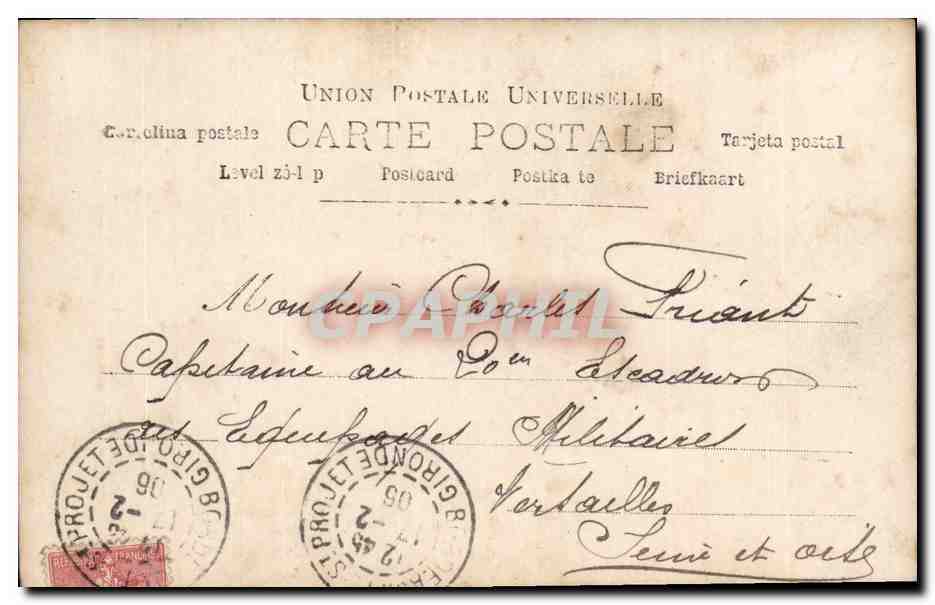 UNION POSTALE UNIVERSELLE
Cartolina postale CARTE POSTALE Tarjeta postal
Level zö-l p Postcard Postka te Briefkaart
CPAPHIL
Monsieur Charles Friant
Capitaine au 20em Escadron
des Equipages Militaires
Versailles
Seine et oise
ST PROJET GIRONDE
12 45
17 -2
05
PROJET GIRONDE
-2
06